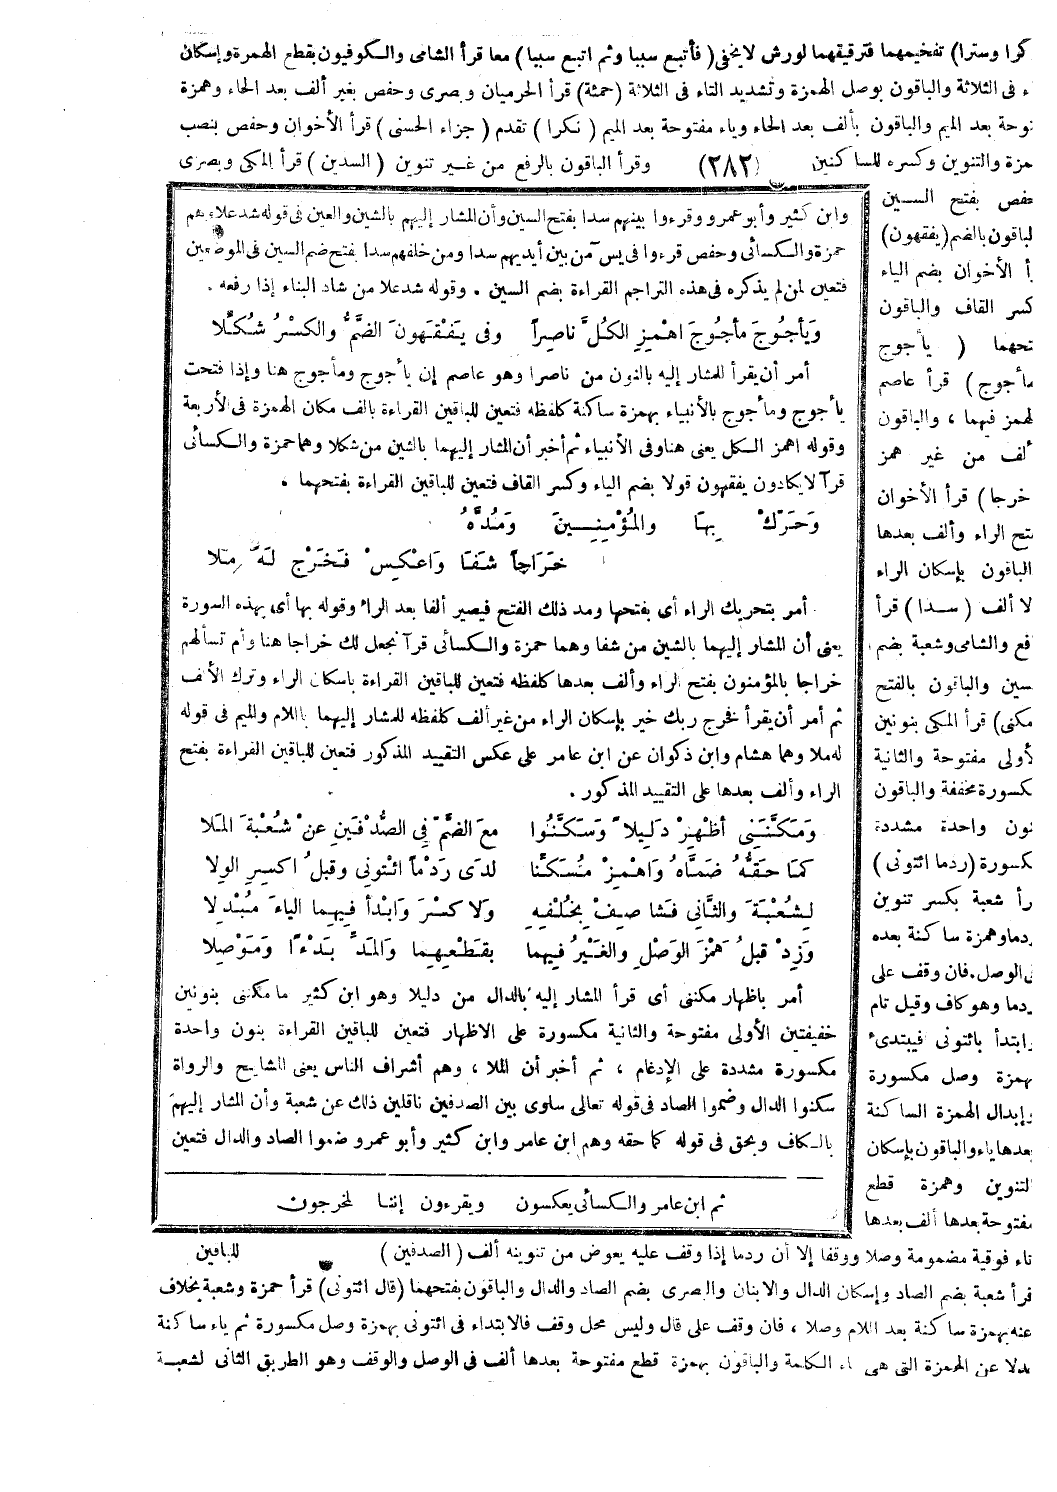 كرا وسترا) تفخيمهما فترقيقهما لورش لايخفى (فأتبع سببا وثم اتبع سببا) معا قرأ الشامى والكوفيون بقطع الهمزة وإسكان
ء فى الثلاثة والباقون بوصل الهمزة وتشديد التاء فى الثلاثة (حمئة) قرأ الحرميان وبصرى وحفص بغير ألف بعد الحاء وهمزة
نوحة بعد الميم والباقون بألف بعد الحاء وياء مفتوحة بعد الميم (نكرا) تقدم (جزاء الحسنى) قرأ الأخوان وحفص بنصب
همزة والتنوين وكسره للساكنين (٢٨٢) وقرأ الباقون بالرفع من غير تنوين (السدين) قرأ المكى وبصرى
حفص بفتح السين
لباقون بالضم (يفقهون)
أ الأخوان بضم الياء
كسر القاف والباقون
تحهما (يأجوج
مأجوج) قرأ عاصم
لهمز فيهما ، والباقون
ألف من غير همز
خرجا) قرأ الأخوان
تح الراء وألف بعدها
الباقون بإسكان الراء
لا ألف (سدا) قرأ
فع والشامى وشعبة بضم
سين والباقون بالفتح
مكنى) قرأ المكى بنونين
لأولى مفتوحة والثانية
كسورة مخففة والباقون
نون واحدة مشددة
كسورة (ردما ائتونى)
رأ شعبة بكسر تنوين
ردما وهمزة ساكنة بعده
فى الوصل . فان وقف على
ردما وهو كاف وقيل تام
ابتدأ بائتونى فيبتدئ
بهمزة وصل مكسورة
وإبدال الهمزة الساكنة
بعدها ياء والباقون بإسكان
لتنوين وهمزة قطع
مفتوحة بعدها ألف بعدها
وابن كثير وأبو عمرو وقرءوا بينهم سدا بفتح السين وأن المشار إليهم بالشين والعين فى قوله شد علا وهم
حمزة والكسائى وحفص قرءوا فى يس من بين أيديهم سدا ومن خلفهم سدا بفتح ضم السين فى الموضعين
فتعين لمن لم يذكره فى هذه التراجم القراءة بضم السين . وقوله شد علا من شاد البناء إذا رفعه .
وَيَأجُوجَ مَأجُوجَ اهْمِزِ الكُلَّ ناصِراً وفى يَفْقَهُونَ الضَّمُّ والكَسْرُ شُكِّلَا
أمر أن يقرأ للمشار إليه بالنون من ناصرا وهو عاصم إن يأجوج ومأجوج هنا وإذا فتحت
يأجوج ومأجوج بالأنبياء بهمزة ساكنة كلفظه فتعين للباقين القراءة بالف مكان الهمزة فى الأربعة
وقوله اهمز الكل يعنى هنا وفى الأنبياء ثم أخبر أن المشار إليهما بالشين من شكلا وهما حمزة والكسائى
قرآ لا يكادون يفقهون قولا بضم الياء وكسر القاف فتعين للباقين القراءة بفتحهما .
وَحَرِّكْ بِهَا والمُؤْمِنِينَ وَمُدَّهُ
خَرَاجاً شَفَا وَاعْكِسْ فَخَرْجُ لَهُ مُلا
أمر بتحريك الراء أى بفتحها ومد ذلك الفتح فيصير ألفا بعد الراء وقوله بها أى بهذه السورة
يعنى أن المشار إليهما بالشين من شفا وهما حمزة والكسائى قرآ نجعل لك خراجا هنا وأم تسألهم
خراجا بالمؤمنون بفتح الراء وألف بعدها كلفظه فتعين للباقين القراءة باسكان الراء وترك الألف
ثم أمر أن يقرأ فخرج ربك خير بإسكان الراء من غير ألف كلفظه للمشار إليهما باللام والميم فى قوله
له ملا وهما هشام وابن ذكوان عن ابن عامر على عكس التقييد المذكور فتعين للباقين القراءة بفتح
الراء وألف بعدها على التقييد المذكور .
وَمَكَّنَنِى أظْهِرْ دَلِيلاً وَسَكَّنُوا مَعَ الضَّمِّ فى الصُّدْفَينِ عَنْ شُعْبَةَ المَلا
كَمَا حَقُّهُ ضَمَّاهُ وَاهْمِزْ مُسَكِّناً لَدَى رَدْماً ائْتونِى وقبلُ اكسِرِ الوِلا
لِشُعْبَةَ والثَّانِى فَشا صِفْ بِخُلْفِهِ ولا كسْرَ وَابْدَأْ فِيهِما الياءَ مُبْدِلا
وَزِدْ قبلُ هَمْزَ الوَصْلِ والغَيْرُ فيهِما بقَطْعِهِما وَالمَدِّ بَدْءًا وَمَوْصِلا
أمر باظهار مكننى أى قرأ المشار إليه بالدال من دليلا وهو ابن كثير ما مكننى بنونين
خفيفتين الأولى مفتوحة والثانية مكسورة على الاظهار فتعين للباقين القراءة بنون واحدة
مكسورة مشددة على الإدغام ، ثم أخبر أن الملا ، وهم أشراف الناس يعنى المشايخ والرواة
سكنوا الدال وضموا الصاد فى قوله تعالى ساوى بين الصدفين ناقلين ذلك عن شعبة وأن المشار إليهم
بالكاف وبحق فى قوله كما حقه وهم ابن عامر وابن كثير وأبو عمرو ضموا الصاد والدال فتعين
ثم ابن عامر والكسائى يعكسون ويقرءون إننا لمخرجون
للباقين
تاء فوقية مضمومة وصلا ووقفا إلا أن ردما إذا وقف عليه يعوض من تنوينه ألف (الصدفين)
قرأ شعبة بضم الصاد وإسكان الدال والابنان والبصرى بضم الصاد والدال والباقون بفتحهما (قال ائتونى) قرأ حمزة وشعبة بخلاف
عنه بهمزة ساكنة بعد اللام وصلا ، فان وقف على قال وليس محل وقف فالابتداء فى ائتونى بهمزة وصل مكسورة ثم ياء ساكنة
بدلا عن الهمزة التى هى فاء الكلمة والباقون بهمزة قطع مفتوحة بعدها ألف فى الوصل والوقف وهو الطريق الثانى لشعبة